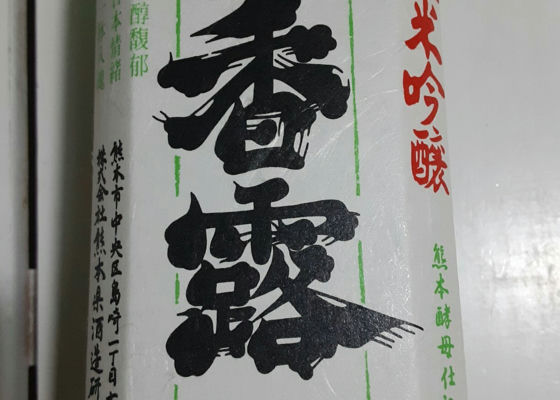 米吟醸
熊本酵母仕
香露
醇馥郁
本情緒
熊本市中央区島崎一丁目
株式会社熊本県酒造研